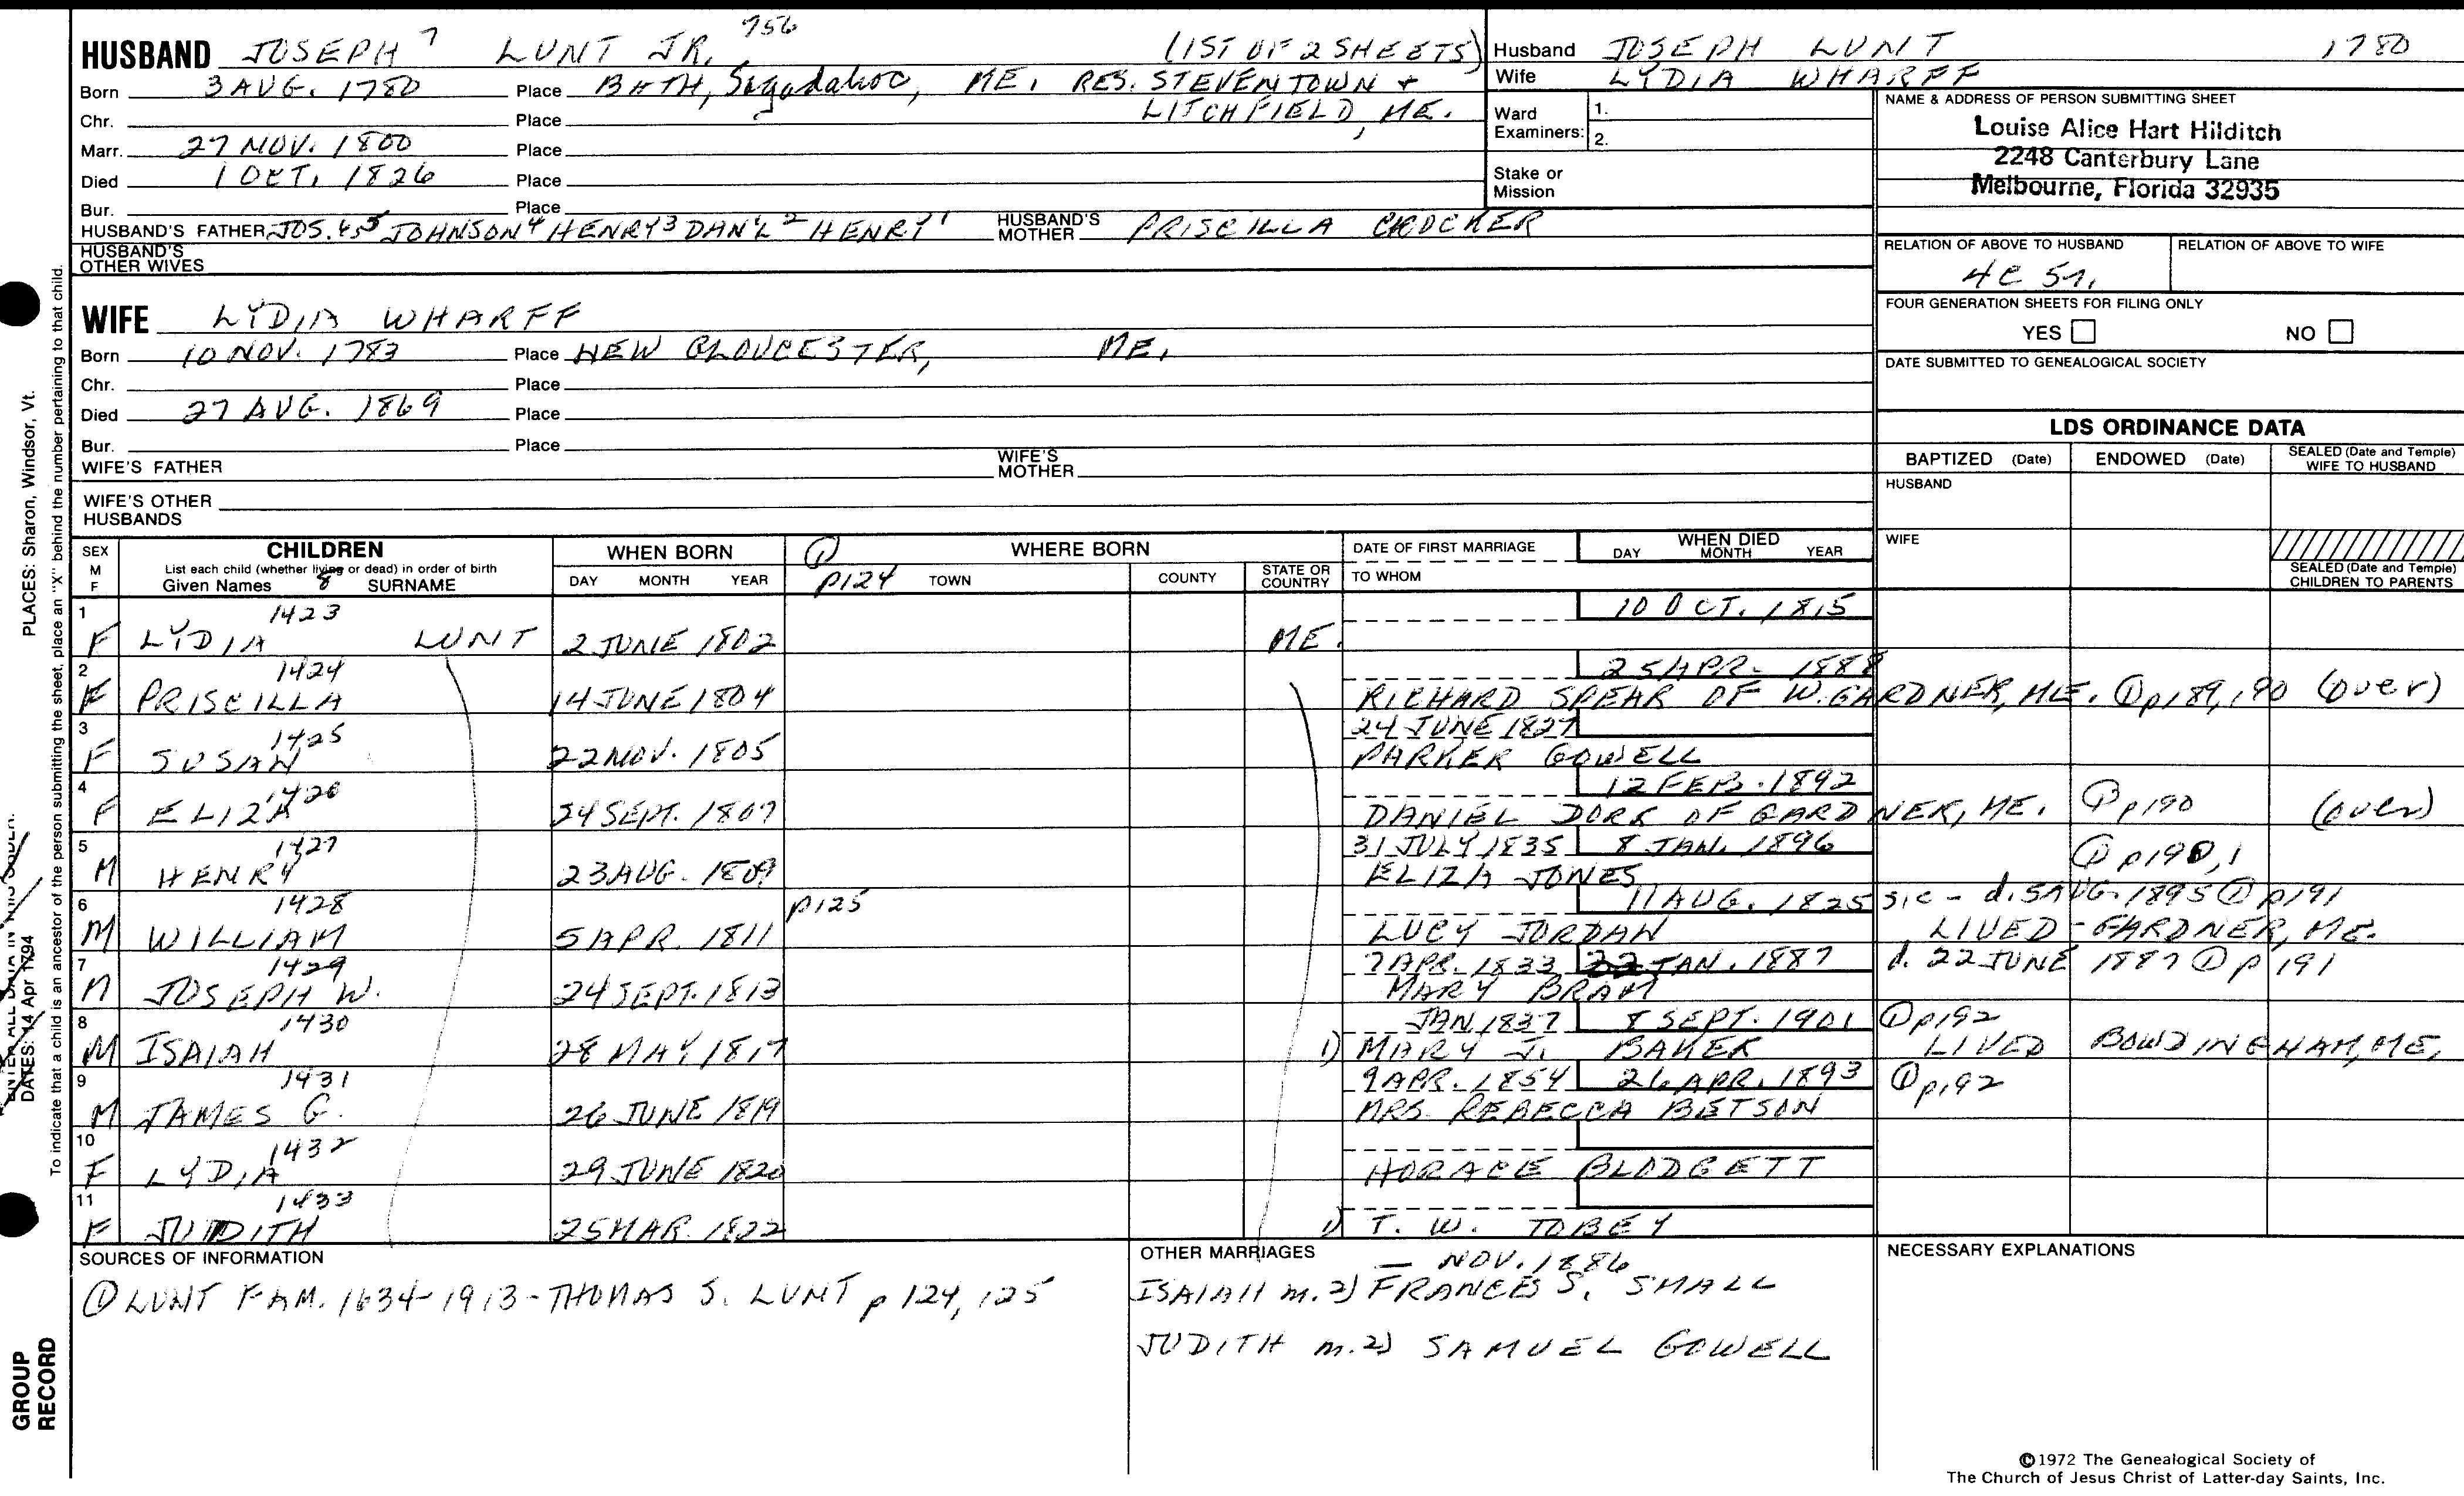 HUSBAND JOSEPH 7 LUNT JR. 756 (1ST OF 2 SHEETS)
Born 3 AUG. 1780 Place BATH, Sagadahoc, ME. RES. STEVENTOWN +
LITCHFIELD, ME.
Chr. Place
Marr. 27 NOV. 1800 Place
Died 1 OCT. 1826 Place
Bur. Place
HUSBAND'S FATHER JOS. JOHNSON 4 HENRY 3 DAN'L 2 HENRY 1 HUSBAND'S MOTHER PRISCILLA CROCKER
HUSBAND'S OTHER WIVES
WIFE LYDIA WHARFF
Born 10 NOV. 1783 Place NEW GLOUCESTER, ME.
Chr. Place
Died 27 AUG. 1869 Place
Bur. Place
WIFE'S FATHER WIFE'S MOTHER
WIFE'S OTHER HUSBANDS
Husband JOSEPH LUNT 1780
Wife LYDIA WHARFF
Ward Examiners: 1.
2.
Stake or Mission
NAME & ADDRESS OF PERSON SUBMITTING SHEET
Louise Alice Hart Hilditch
2248 Canterbury Lane
Melbourne, Florida 32935
RELATION OF ABOVE TO HUSBAND RELATION OF ABOVE TO WIFE
4C 5r.
FOUR GENERATION SHEETS FOR FILING ONLY
YES NO
DATE SUBMITTED TO GENEALOGICAL SOCIETY
LDS ORDINANCE DATA
BAPTIZED (Date) ENDOWED (Date) SEALED (Date and Temple) WIFE TO HUSBAND
HUSBAND
WIFE
SEALED (Date and Temple) CHILDREN TO PARENTS
SEX M F CHILDREN WHEN BORN ① WHERE BORN DATE OF FIRST MARRIAGE WHEN DIED
List each child (whether living or dead) in order of birth
Given Names 8 SURNAME DAY MONTH YEAR p124 TOWN COUNTY STATE OR COUNTRY TO WHOM DAY MONTH YEAR
1 1423 10 OCT. 1815
F LYDIA LUNT 2 JUNE 1802 ME.
2 1424 25 APR. 1888
F PRISCILLA 14 JUNE 1804 RICHARD SPEAR OF W. GARDNER, ME. ① p189, 190 (over)
3 1425 24 JUNE 1827
F SUSAN 22 NOV. 1805 PARKER GOWELL
4 1426 12 FEB. 1892
F ELIZA 24 SEPT. 1807 DANIEL DORR OF GARDNER, ME. ① p190 (over)
5 1427 31 JULY 1835 8 JAN. 1896
M HENRY 23 AUG. 1809 ELIZA JONES ① p190, 1
6 1428 p125 11 AUG. 1825 sic - d. 5 AUG. 1895 ① p191
M WILLIAM 5 APR. 1811 LUCY JORDAN LIVED - GARDNER, ME.
7 1429 7 APR. 1833 22 JAN. 1887 d. 22 JUNE 1887 ① p191
M JOSEPH W. 24 SEPT. 1813 MARY BRAM
8 1430 JAN 1837 8 SEPT. 1901 ① p192
M ISAIAH 28 MAY 1817 1) MARY J. BAKER LIVED BOWDINGHAM, ME.
9 1431 9 APR. 1854 26 APR. 1893 ① p192
M JAMES G. 26 JUNE 1819 MRS. REBECCA BETSON
10 1432
F LYDIA 29 JUNE 1820 HORACE BLODGETT
11 1433
F JUDITH 25 MAR. 1822 1) T. W. TOBEY
SOURCES OF INFORMATION
① LUNT FAM. 1634-1913 - THOMAS S. LUNT p 124, 125
OTHER MARRIAGES
— NOV. 1886
ISAIAH m. 2) FRANCES S. SMALL
JUDITH m. 2) SAMUEL GOWELL
NECESSARY EXPLANATIONS
©1972 The Genealogical Society of
The Church of Jesus Christ of Latter-day Saints, Inc.
To indicate that a child is an ancestor of the person submitting the sheet, place an "X" behind the number pertaining to that child.
PLACES: Sharon, Windsor, Vt.
DATES: 14 Apr 1794
ENTER ALL DATA IN THIS ORDER:
GROUP
RECORD